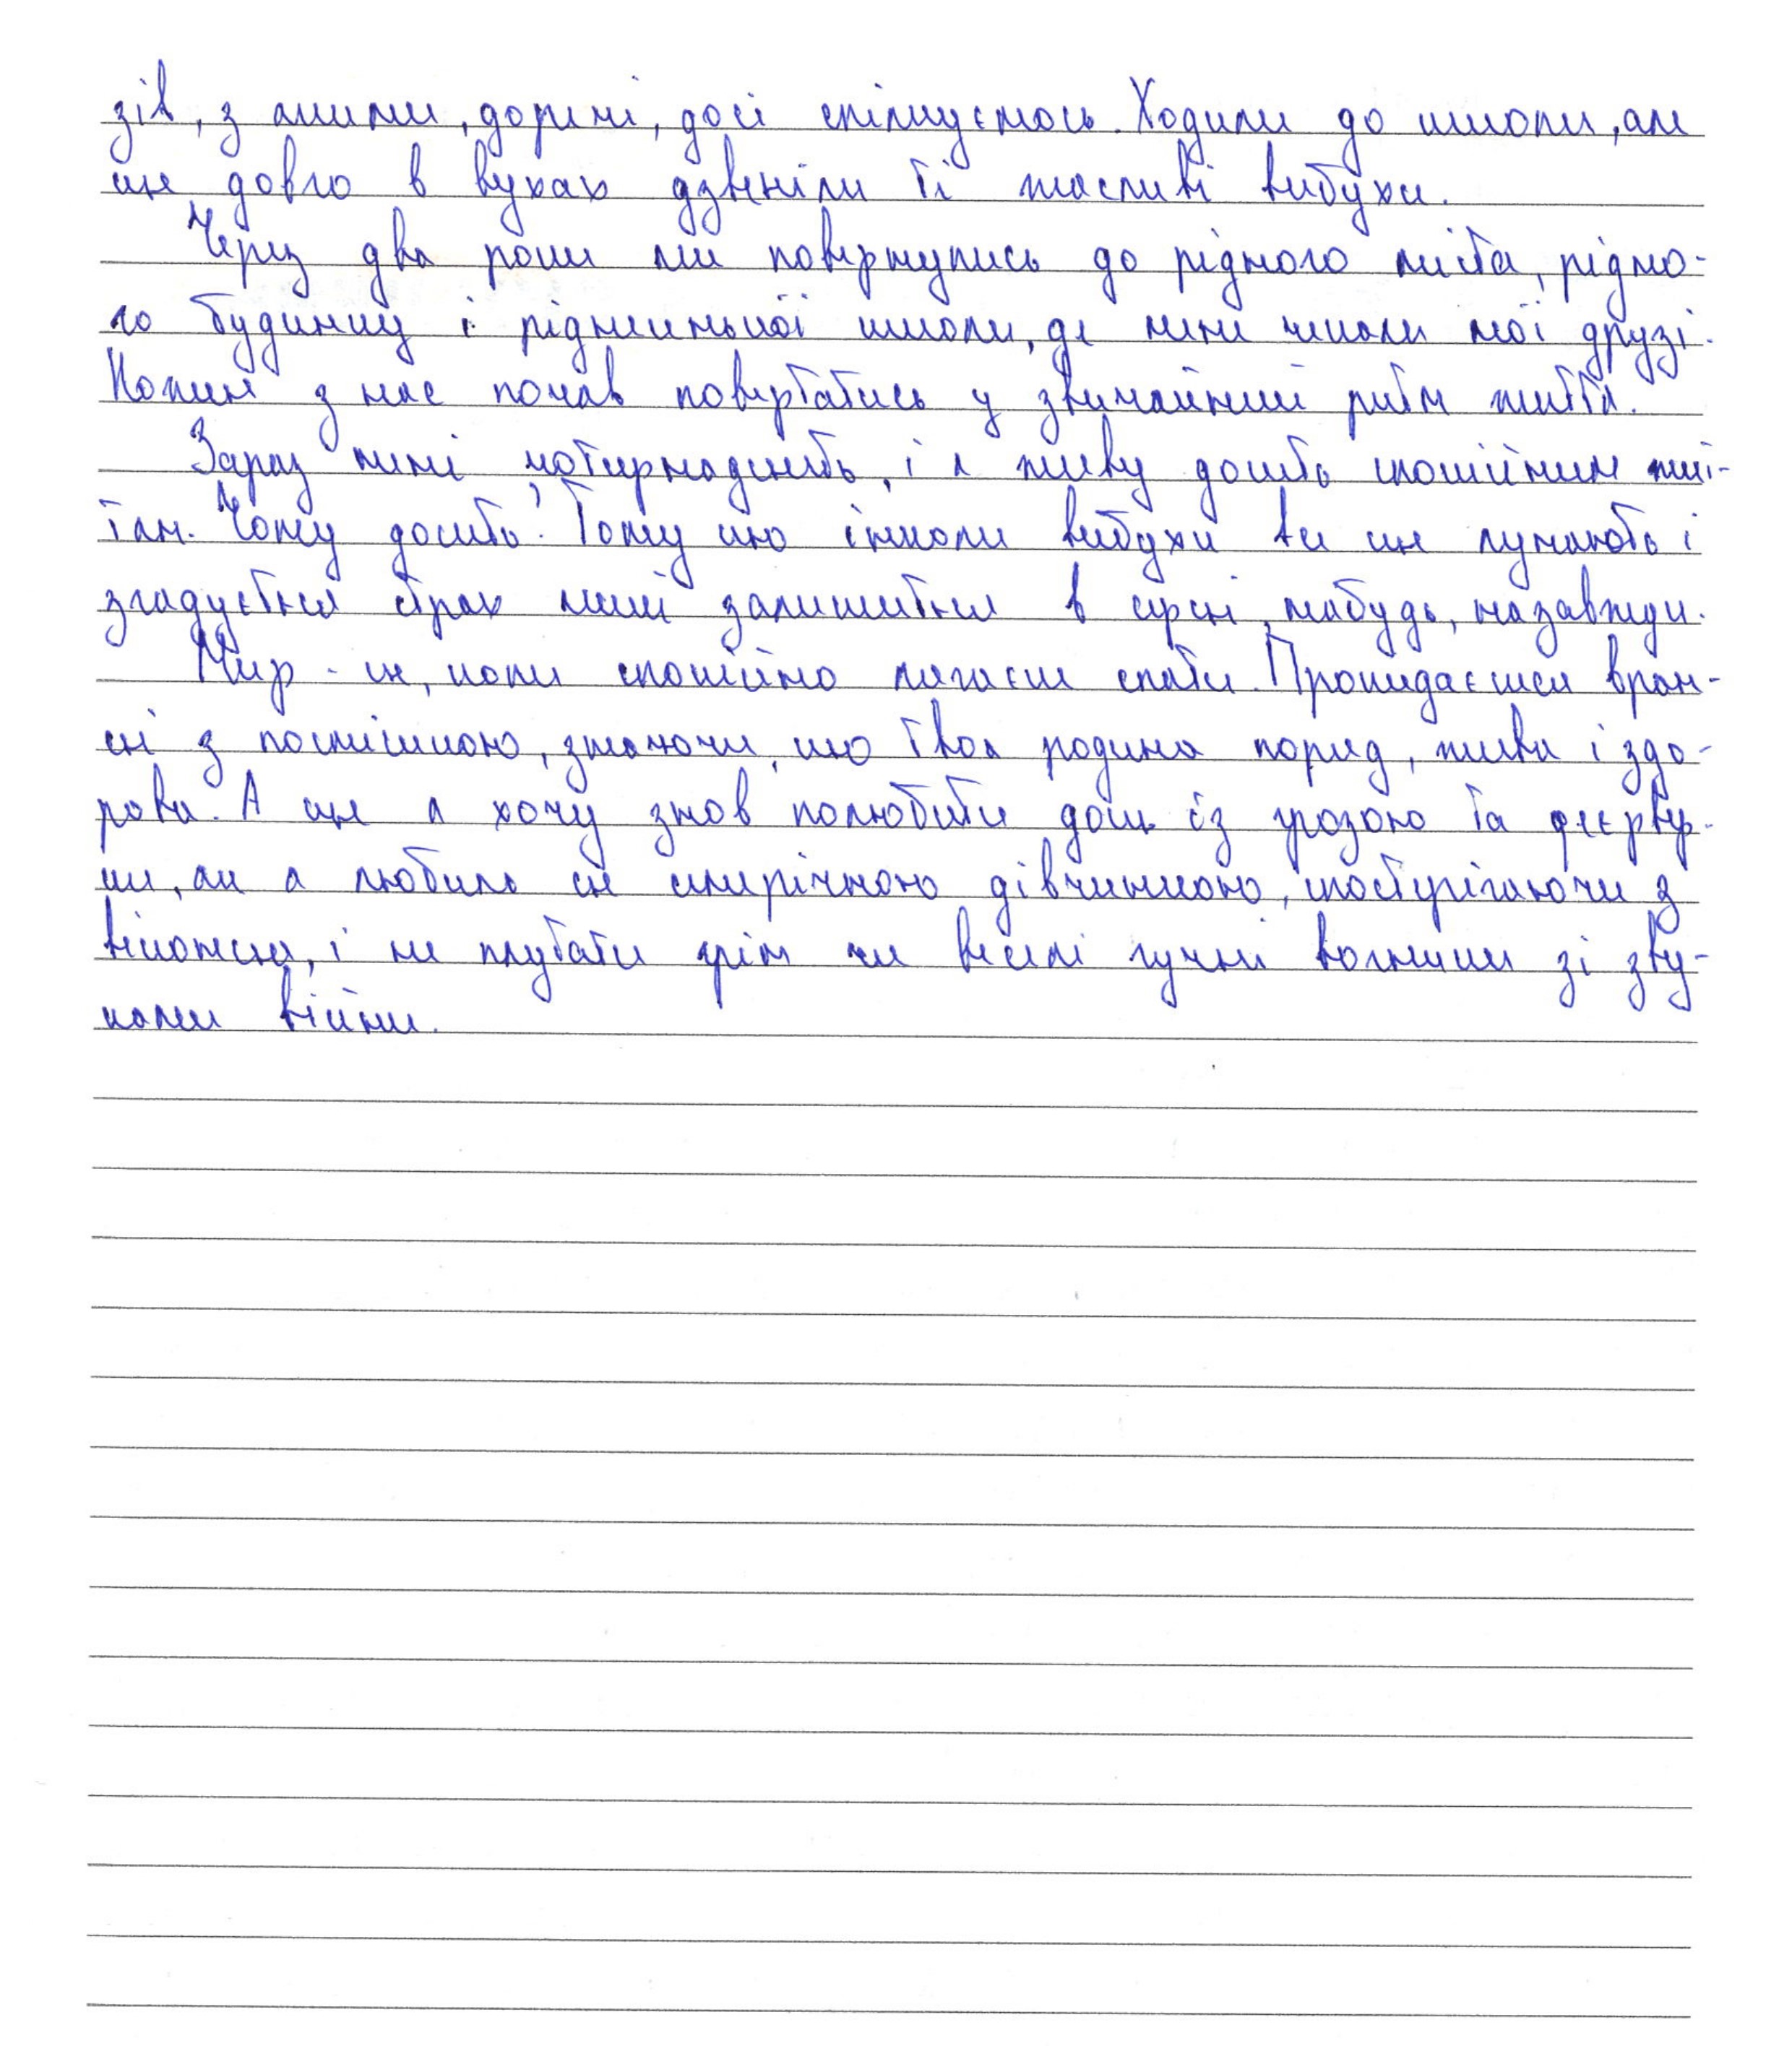 зів, з якими, до речі, досі спілкуємось. Ходили до школи, але
ще довго в вухах дзвеніли ті жахливі вибухи.
Через два роки ми повернулись до рідного міста, рідно-
го будинку і ріднесенької школи, де мене чекали мої друзі.
Кожен з нас почав повертатись у звичайний ритм життя.
Зараз мені чотирнадцять, і я живу досить спокійним жит-
тям. Чому досить? Тому що інколи вибухи все ще лунають і
згадується страх який залишиться в серці, мабуть, назавжди.
Мир - це, коли спокійно лягаєш спати. Прокидаєшся вран-
ці з посмішкою, знаючи, що твоя родина поряд, жива і здо-
рова. А ще я хочу знов полюбити дощ із грозою та феєрвер-
ки, як я любила це семирічною дівчинкою, спостерігаючи з
віконця, і не плутати грім чи веселі гучні вогники зі зву-
ками війни.